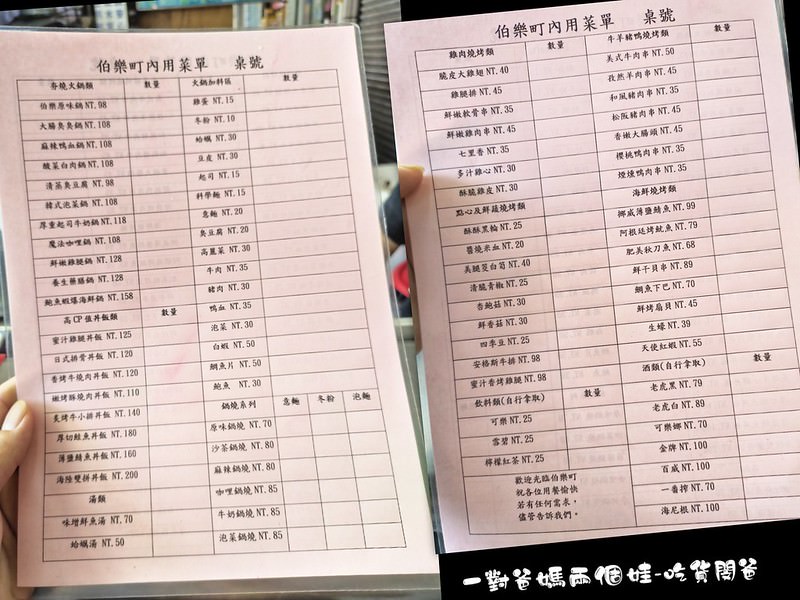 伯樂町內用菜單 桌號
夯燒火鍋類 數量 火鍋加料區 數量
伯樂原味鍋 NT.98 雞蛋 NT.15
大腸臭臭鍋 NT.108 冬粉 NT.10
麻辣鴨血鍋 NT.108 蛤蠣 NT.30
酸菜白肉鍋 NT.108 豆皮 NT.30
清蒸臭豆腐 NT.98 起司 NT.15
韓式泡菜鍋 NT.108 科學麵 NT.15
厚重起司牛奶鍋 NT.118 意麵 NT.20
魔法咖哩鍋 NT.108 臭豆腐 NT.20
鮮嫩雞腿鍋 NT.128 高麗菜 NT.30
養生藥膳鍋 NT.128 牛肉 NT.35
鮑魚蝦爆海鮮鍋 NT.158 豬肉 NT.30
高CP值丼飯類 數量 鴨血 NT.35
蜜汁雞腿丼飯 NT.125 泡菜 NT.30
日式排骨丼飯 NT.120 白蝦 NT.50
香烤牛燒肉丼飯 NT.120 鯛魚片 NT.50
嫩烤豚燒肉丼飯 NT.110 鮑魚 NT.30
炙烤牛小排丼飯 NT.140 鍋燒系列 意麵 冬粉 泡麵
厚切鮭魚丼飯 NT.180 原味鍋燒 NT.70
薄鹽鯖魚丼飯 NT.160 沙茶鍋燒 NT.80
海陸雙拼丼飯 NT.200 麻辣鍋燒 NT.80
湯類 咖哩鍋燒 NT.85
味增鮮魚湯 NT.70 牛奶鍋燒 NT.85
蛤蠣湯 NT.50 泡菜鍋燒 NT.85
伯樂町內用菜單 桌號
雞肉燒烤類 數量 牛羊豬鴨燒烤類 數量
脆皮大雞翅 NT.40 美式牛肉串 NT.50
雞腿排 NT.45 孜然羊肉串 NT.45
鮮嫩軟骨串 NT.35 和風豬肉串 NT.35
鮮嫩雞肉串 NT.45 松阪豬肉串 NT.45
七里香 NT.35 香嫩大腸頭 NT.45
多汁雞心 NT.30 櫻桃鴨肉串 NT.35
酥脆雞皮 NT.30 煙燻鴨肉串 NT.35
點心及鮮蔬燒烤類 海鮮燒烤類
酥酥黑輪 NT.25 挪威薄鹽鯖魚 NT.99
醬燒米血 NT.20 阿根廷烤魷魚 NT.79
美腿茭白筍 NT.40 肥美秋刀魚 NT.68
清脆青椒 NT.25 鮮干貝串 NT.89
杏鮑菇 NT.30 鯛魚下巴 NT.70
鮮香菇 NT.30 鮮烤扇貝 NT.45
四季豆 NT.25 生蠔 NT.39
安格斯牛排 NT.98 天使紅蝦 NT.55
蜜汁香烤雞腿 NT.98 酒類(自行拿取) 數量
飲料類(自行拿取) 數量 老虎黑 NT.79
可樂 NT.25 老虎白 NT.89
雪碧 NT.25 可樂娜 NT.70
檸檬紅茶 NT.25 金牌 NT.100
歡迎光臨伯樂町 百威 NT.100
祝各位用餐愉快 一番搾 NT.70
若有任何需求, 海尼根 NT.100
儘管告訴我們。
一對爸媽兩個娃-吃貨闆爸